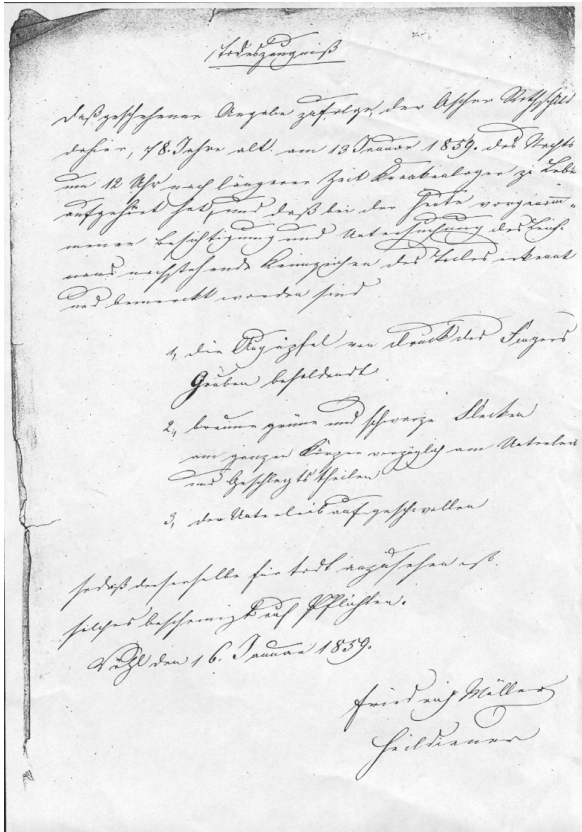 Todeszeugniß
Daß geschehener Angabe zufolge, der Ascher Rothschild
dahier, 78 Jahre alt am 13 Januar 1859. des Nachts
um 12 Uhr nach längerer Zeit Krankenlager zu Leben
aufgehört hat, und daß bei der Heute vorgenom„
menen Besichtigung und Untersuchung des Leich„
nams nachstehende Kennzeichen des Todes erkannt
und bemerckt worden sind
1, die Augäpfel von Druck des Fingers
Gruben behaltend
2, braune grüne und schwarze Flecken
am ganzen Körper vorzüglich am Unterleib
und Geschlegtstheilen
3, der Unterleib aufgeschwollen
sodaß derselbe für todt anzusehen ist.
solches bescheinigt auf Pflichten.
Vöhl den 16. Januar 1859.
Friedrich Möller
Heildiener